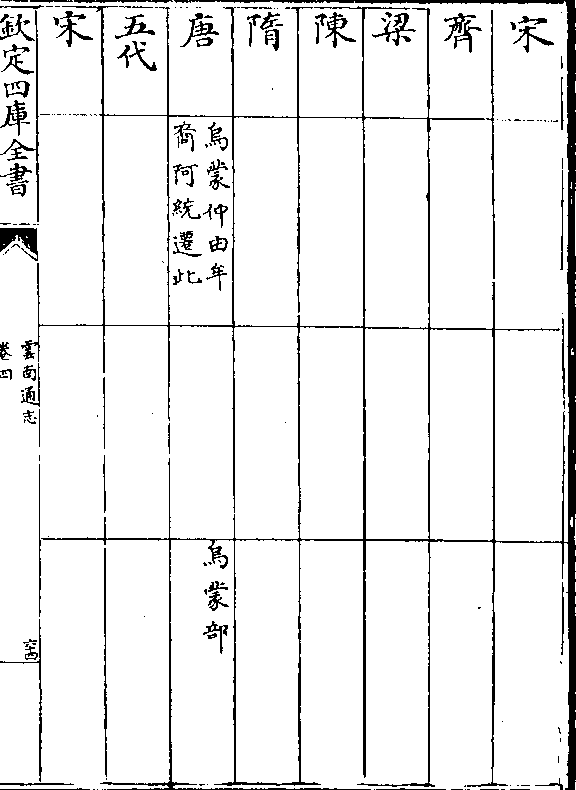 宋
齊
梁
陳
隋
唐
烏蒙仲由牟
裔阿統遷此
烏蒙部
五代
宋
欽定四庫全書
雲南通志
卷四